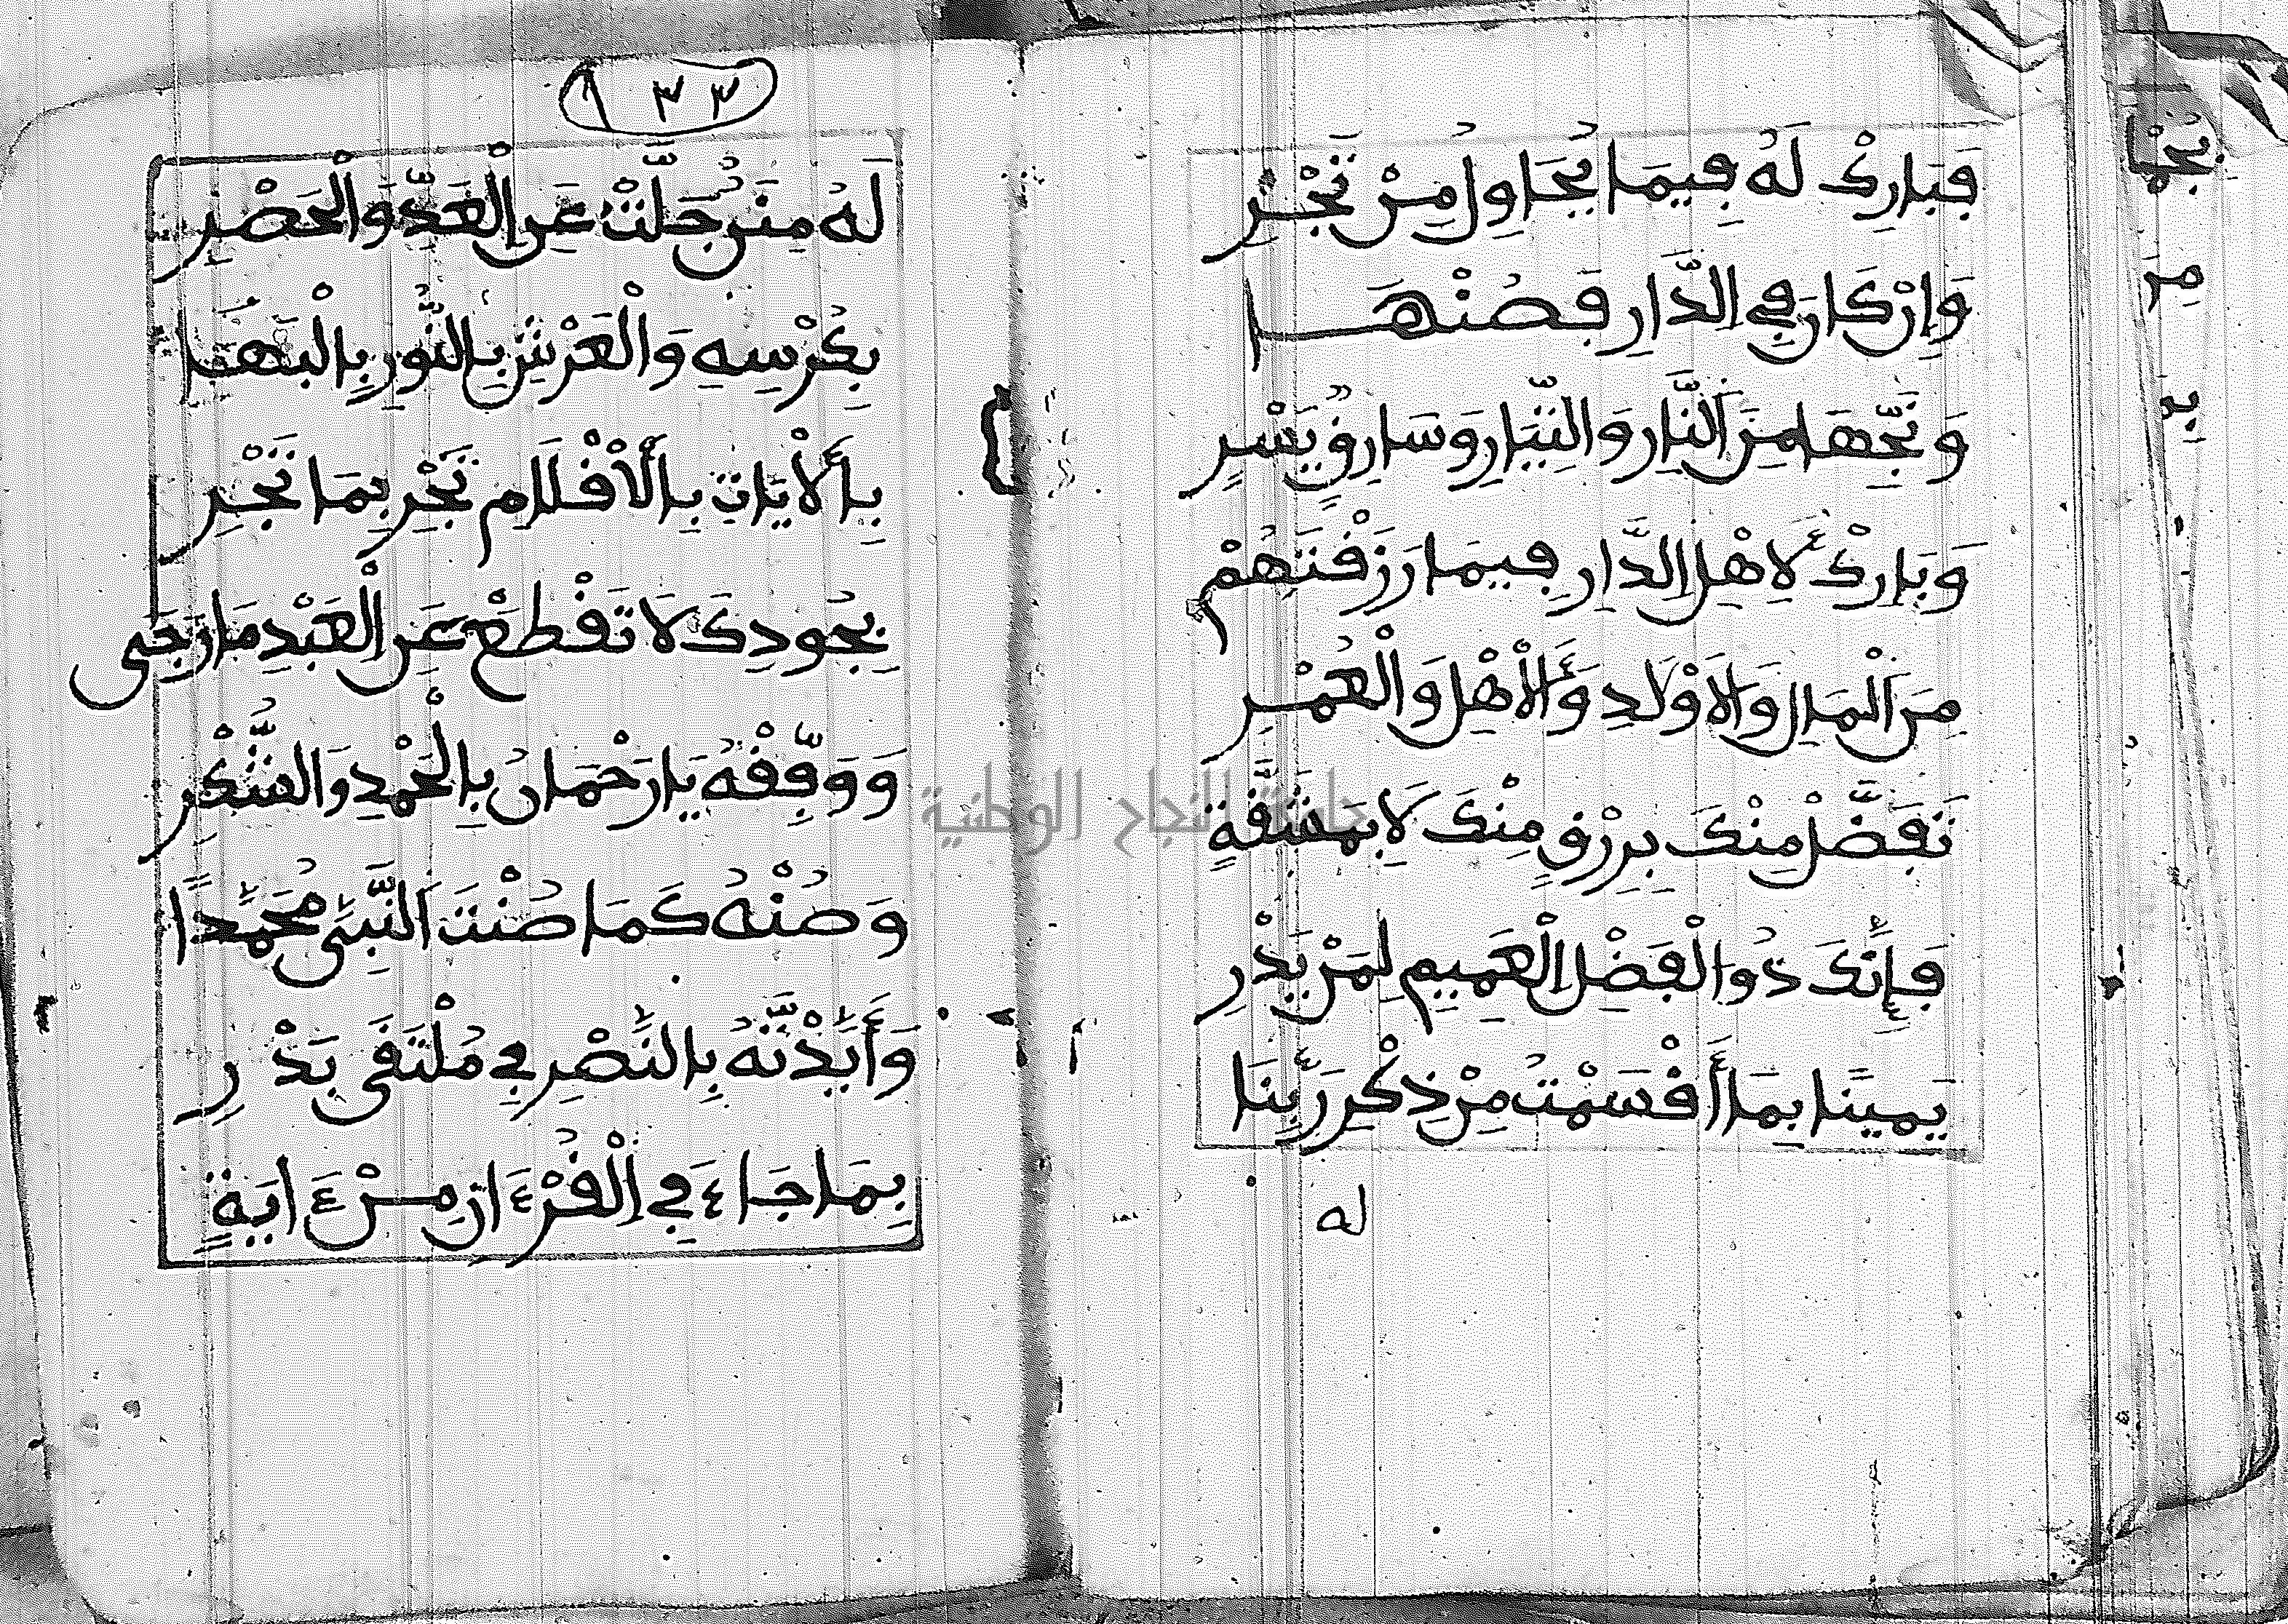 فَبَارِكْ لَهُ فِيمَا يُحَاوِلُ مِنْ تَجْرِ
وَإِنْ كَانَ فِي الدَّارِ فَصُنْهَا
وَنَجِّهَا مِنَ النَّارِ وَالتِّيَّارِ وَسَارِقٍ يَسْرِ
وَبَارِكْ لِأَهْلِ الدَّارِ فِيمَا رَزَقْتَهُمْ
مِنَ الْمَالِ وَالْأَوْلَدِ وَالْأَهْلِ وَالْعُمْرِ
تَفَضَّلْ مِنْكَ بِرِزْقٍ مِنْكَ لَا بِمَشَقَّةٍ
فَإِنَّكَ ذُوا الْفَضْلِ الْعَمِيمِ لِمَنْ يَدْرِ
يَمِينًا بِمَا أَقْسَمْتُ مِنْ ذِكْرِ رَبِّنَا
له
١٣٣
لَهُ مِنَنٌ جَلَّتْ عَنِ الْعَدِّ وَالْحَصْرِ
بِكُرْسِيهِ وَالْعَرْشِ بِالنُّورِ بِالْبَهَا
بِالْأيَاتِ بِالْأَقْلَامِ تَجْرِ بِمَا تَجْرِ
بِجُودِكَ لَا تَقْطَعْ عَنِ الْعَبْدِ مَا رَجَى
وَوَفِّقْهُ يَا رَحْمَانُ بِالْحَمْدِ وَالشُّكْرِ
وَصُنْهُ كَمَا صُنْتَ النَّبِيَّ مُحَمَّدًا
وَأَيَّدْتَهُ بِالنَّصْرِ فِي مُلْتَقَى بَدْرِ
بِمَا جَاءَ فِي الْقُرْءَانِ مِنْ ءَايَةٍ
جامعة النجاح الوطنية